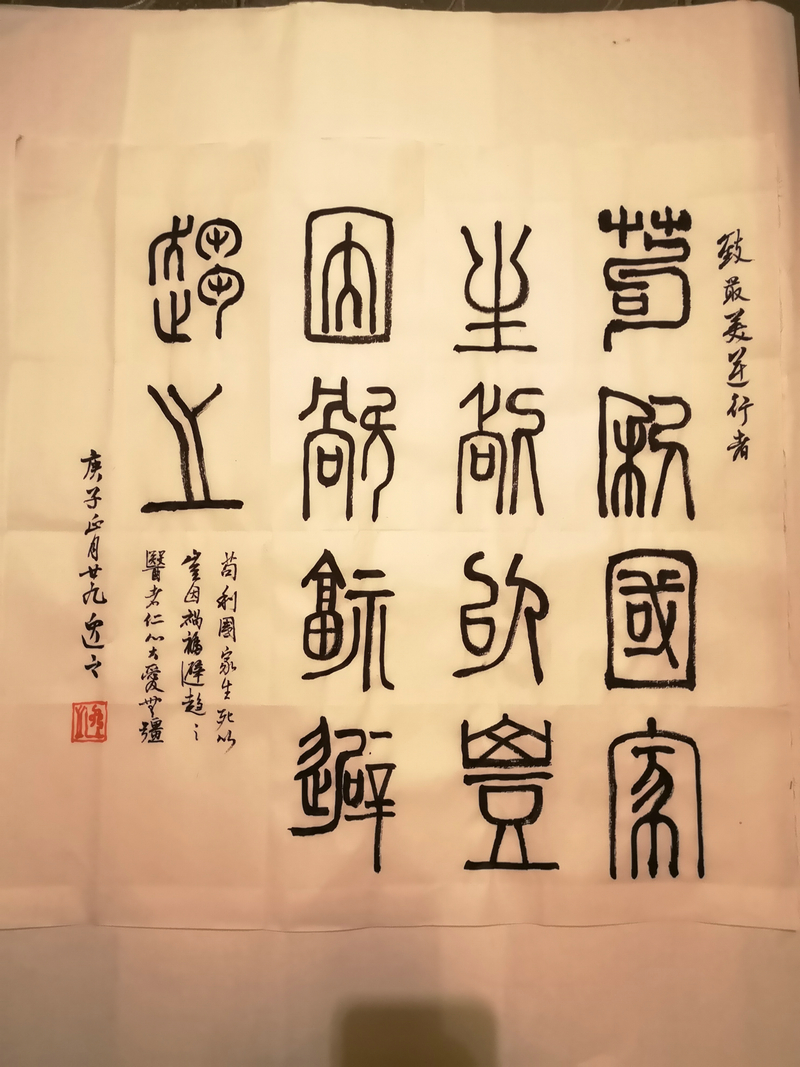 致最美逆行者
苟利國家
生死以豈
因禍福避
趨之
苟利國家生死以
豈因禍福避趨之
醫者仁心大愛無疆
庚子正月廿九